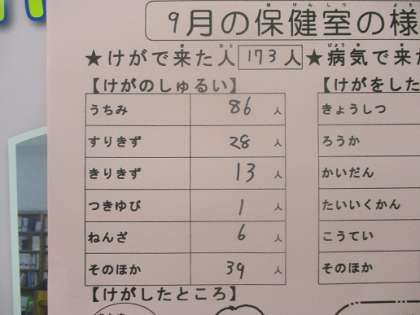 9月の保健室の様
★けがで来た人 173人 ★病気で来
【けがのしゅるい】 【けがをした
うちみ 86人 きょうしつ
すりきず 28人 ろうか
きりきず 13人 かいだん
つきゆび 1人 たいいくかん
ねんざ 6人 こうてい
そのほか 39人 そのほか
【けがしたところ】